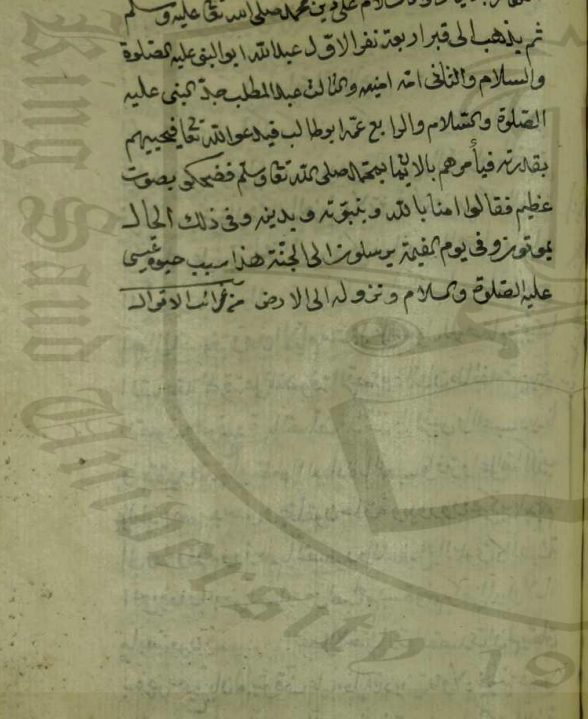 على دين محمد صلى الله تعا عليه وسلم
ثم يذهب الى قبر اربعة نفر الاول عبد الله ابو النبي عليه الصلوة
والسلام والثاني امه امينه والثالث عبد المطلب جد النبي عليه
الصلوة والسلام والرابع عمه ابو طالب فيدعو الله تعا فيحييهم
بقدرته فيأمرهم بالايمان بمحمد صلى الله تعا وسلم بصوت
عظيم فقالوا امنا بالله وبنبوته وبدينه وفي ذلك الحال
يموتون وفي يوم القيمة يرسلون الى الجنة هذا سبب حيوة عيسى
عليه الصلوة والسلام ونزوله الى الارض من غرائب الاقوال
King Saud University